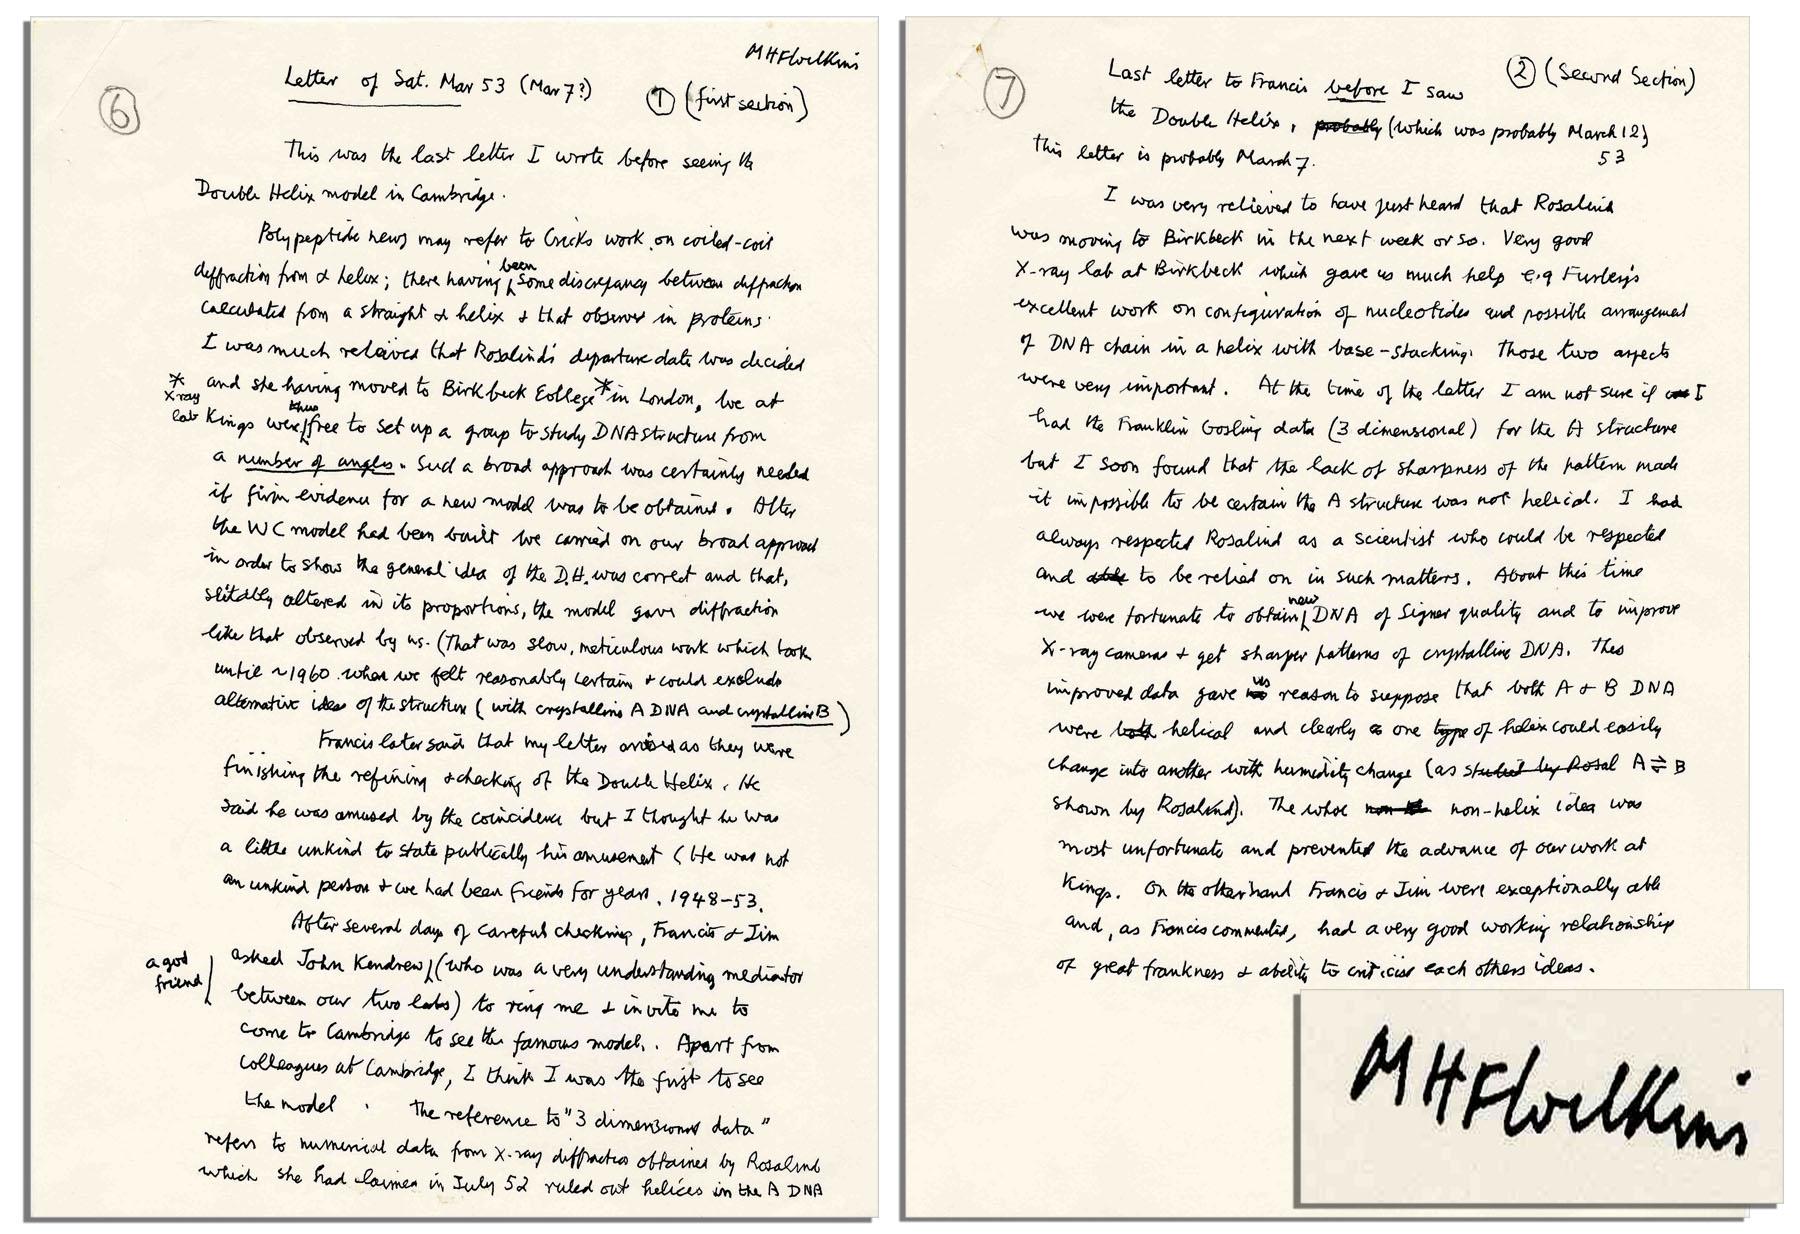 MHFWilkins
Letter of Sat. Mar 53 (Mar 7?)
① (first section)
6
This was the last letter I wrote before seeing the
Double Helix model in Cambridge.
Polypeptide news may refer to Cricks work on coiled-coil
diffraction from α helix; there having been some discrepancy between diffraction
calculated from a straight α helix & that observed in proteins.
I was much relieved that Rosalind's departure date was decided
and she having moved to Birkbeck College * in London, we at
* X-ray lab
Kings were thus free to set up a group to study DNA structure from
a number of angles. Such a broad approach was certainly needed
if firm evidence for a new model was to be obtained. After
the WC model had been built we carried on our broad approach
in order to show the general idea of the D.H. was correct and that,
suitably altered in its proportions, the model gave diffraction
like that observed by us. (That was slow, meticulous work which took
until ~1960 when we felt reasonably certain & could exclude
alternative ideas of the structure (with crystalline A DNA and crystalline B)
Francis later said that my letter arrived as they were
finishing the refining & checking of the Double Helix. He
said he was amused by the coincidence but I thought he was
a little unkind to state publically his amusement (He was not
an unkind person & we had been friends for years, 1948-53.
After several days of careful checking, Francis & Jim
asked John Kendrew (who was a very understanding mediator
a good friend
between our two labs) to ring me & invite me to
come to Cambridge to see the famous model. Apart from
colleagues at Cambridge, I think I was the first to see
the model. The reference to "3 dimensional data"
refers to numerical data from X-ray diffraction obtained by Rosalind
which she had claimed in July 52 ruled out helices in the A DNA
7
② (Second Section)
Last letter to Francis before I saw
the Double Helix, probably (which was probably March 12)
53
This letter is probably March 7.
I was very relieved to have just heard that Rosalind
was moving to Birkbeck in the next week or so. Very good
X-ray lab at Birkbeck which gave us much help e.g Furley's
excellent work on configuration of nucleotides and possible arrangement
of DNA chain in a helix with base-stacking. Those two aspects
were very important. At the time of the letter I am not sure if I
had the Franklin Gosling data (3 dimensional) for the A structure
but I soon found that the lack of sharpness of the pattern made
it impossible to be certain the A structure was not helical. I had
always respected Rosalind as a scientist who could be respected
and able to be relied on in such matters. About this time
we were fortunate to obtain new DNA of Signer quality and to improve
X-ray cameras & get sharper patterns of crystalline DNA. This
improved data gave us reason to suppose that both A & B DNA
were both helical and clearly one type of helix could easily
change into another with humidity change (as studied by Rosal A ⇌ B
shown by Rosalind). The whole non-helix idea was
most unfortunate and prevented the advance of our work at
Kings. On the other hand Francis & Jim were exceptionally able
and, as Francis commented, had a very good working relationship
of great frankness & ability to criticise each others ideas.
MHFWilkins